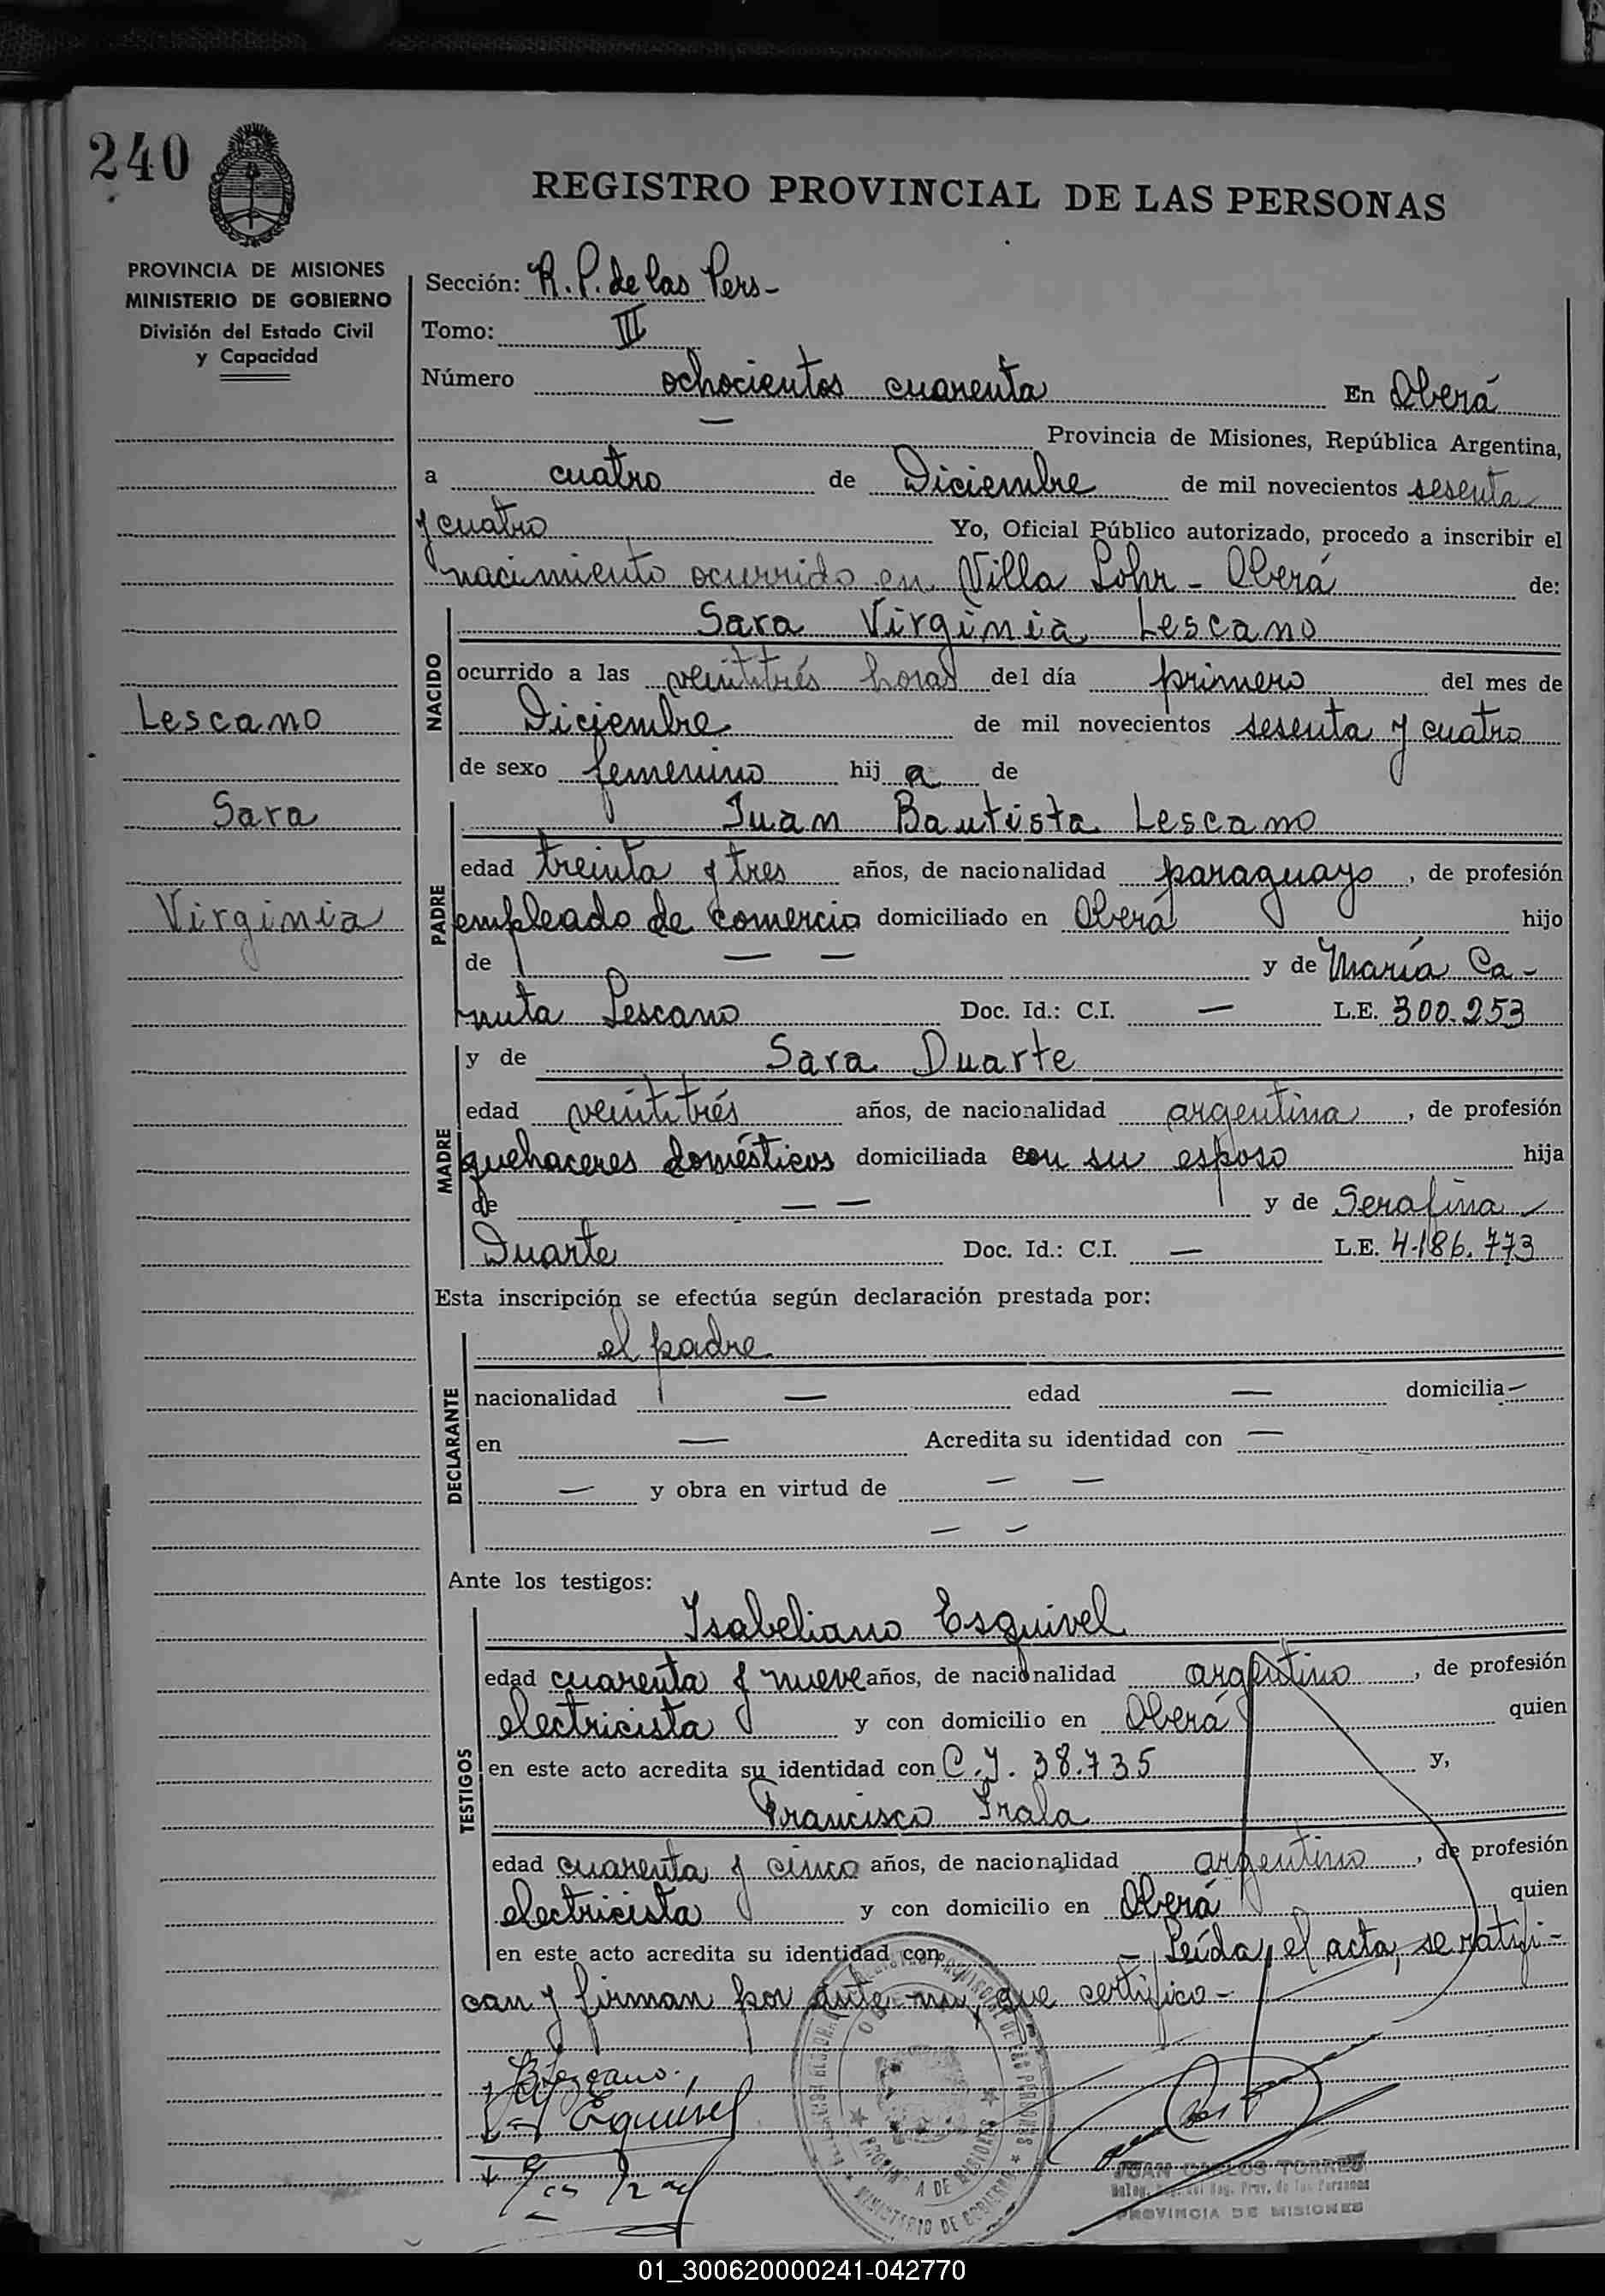 240
REGISTRO PROVINCIAL DE LAS PERSONAS
PROVINCIA DE MISIONES
MINISTERIO DE GOBIERNO
División del Estado Civil
y Capacidad
Sección: R. P. de las Pers-
Tomo: III
Número ochocientos cuarenta En Oberá
— Provincia de Misiones, República Argentina,
a cuatro de Diciembre de mil novecientos sesenta
y cuatro Yo, Oficial Público autorizado, procedo a inscribir el
nacimiento ocurrido en Villa Lohr - Oberá de:
NACIDO
Sara Virginia Lescano
ocurrido a las veintitrés horas del día primero del mes de
Lescano
Diciembre de mil novecientos sesenta y cuatro
de sexo femenino hij a de
Sara
Virginia
PADRE
Juan Bautista Lescano
edad treinta y tres años, de nacionalidad paraguayo, de profesión
empleado de comercio domiciliado en Oberá hijo
de — — y de María Ca-
nuta Lescano Doc. Id.: C.I. — L.E. 300.253
MADRE
y de Sara Duarte
edad veintitrés años, de nacionalidad argentina, de profesión
quehaceres domésticos domiciliada con su esposo hija
de — — y de Serafina
Duarte Doc. Id.: C.I. — L.E. 4.186.773
Esta inscripción se efectúa según declaración prestada por:
DECLARANTE
el padre
nacionalidad — edad — domicilia —
en — Acredita su identidad con —
— y obra en virtud de — —
— —
Ante los testigos:
TESTIGOS
Isabeliano Esquivel
edad cuarenta y nueve años, de nacionalidad argentino, de profesión
electricista y con domicilio en Oberá quien
en este acto acredita su identidad con C.I. 38.735 y,
Francisco Irala
edad cuarenta y cinco años, de nacionalidad argentino, de profesión
electricista y con domicilio en Oberá quien
en este acto acredita su identidad con - Leída, el acta, se ratifi-
can y firman por ante mí, que certifico-
Esquivel
PROVINCIA DE MISIONES
MINISTERIO DE GOBIERNO
JUAN CARLOS TORRES
Reg. Prov. de las Personas
PROVINCIA DE MISIONES
01_300620000241-042770